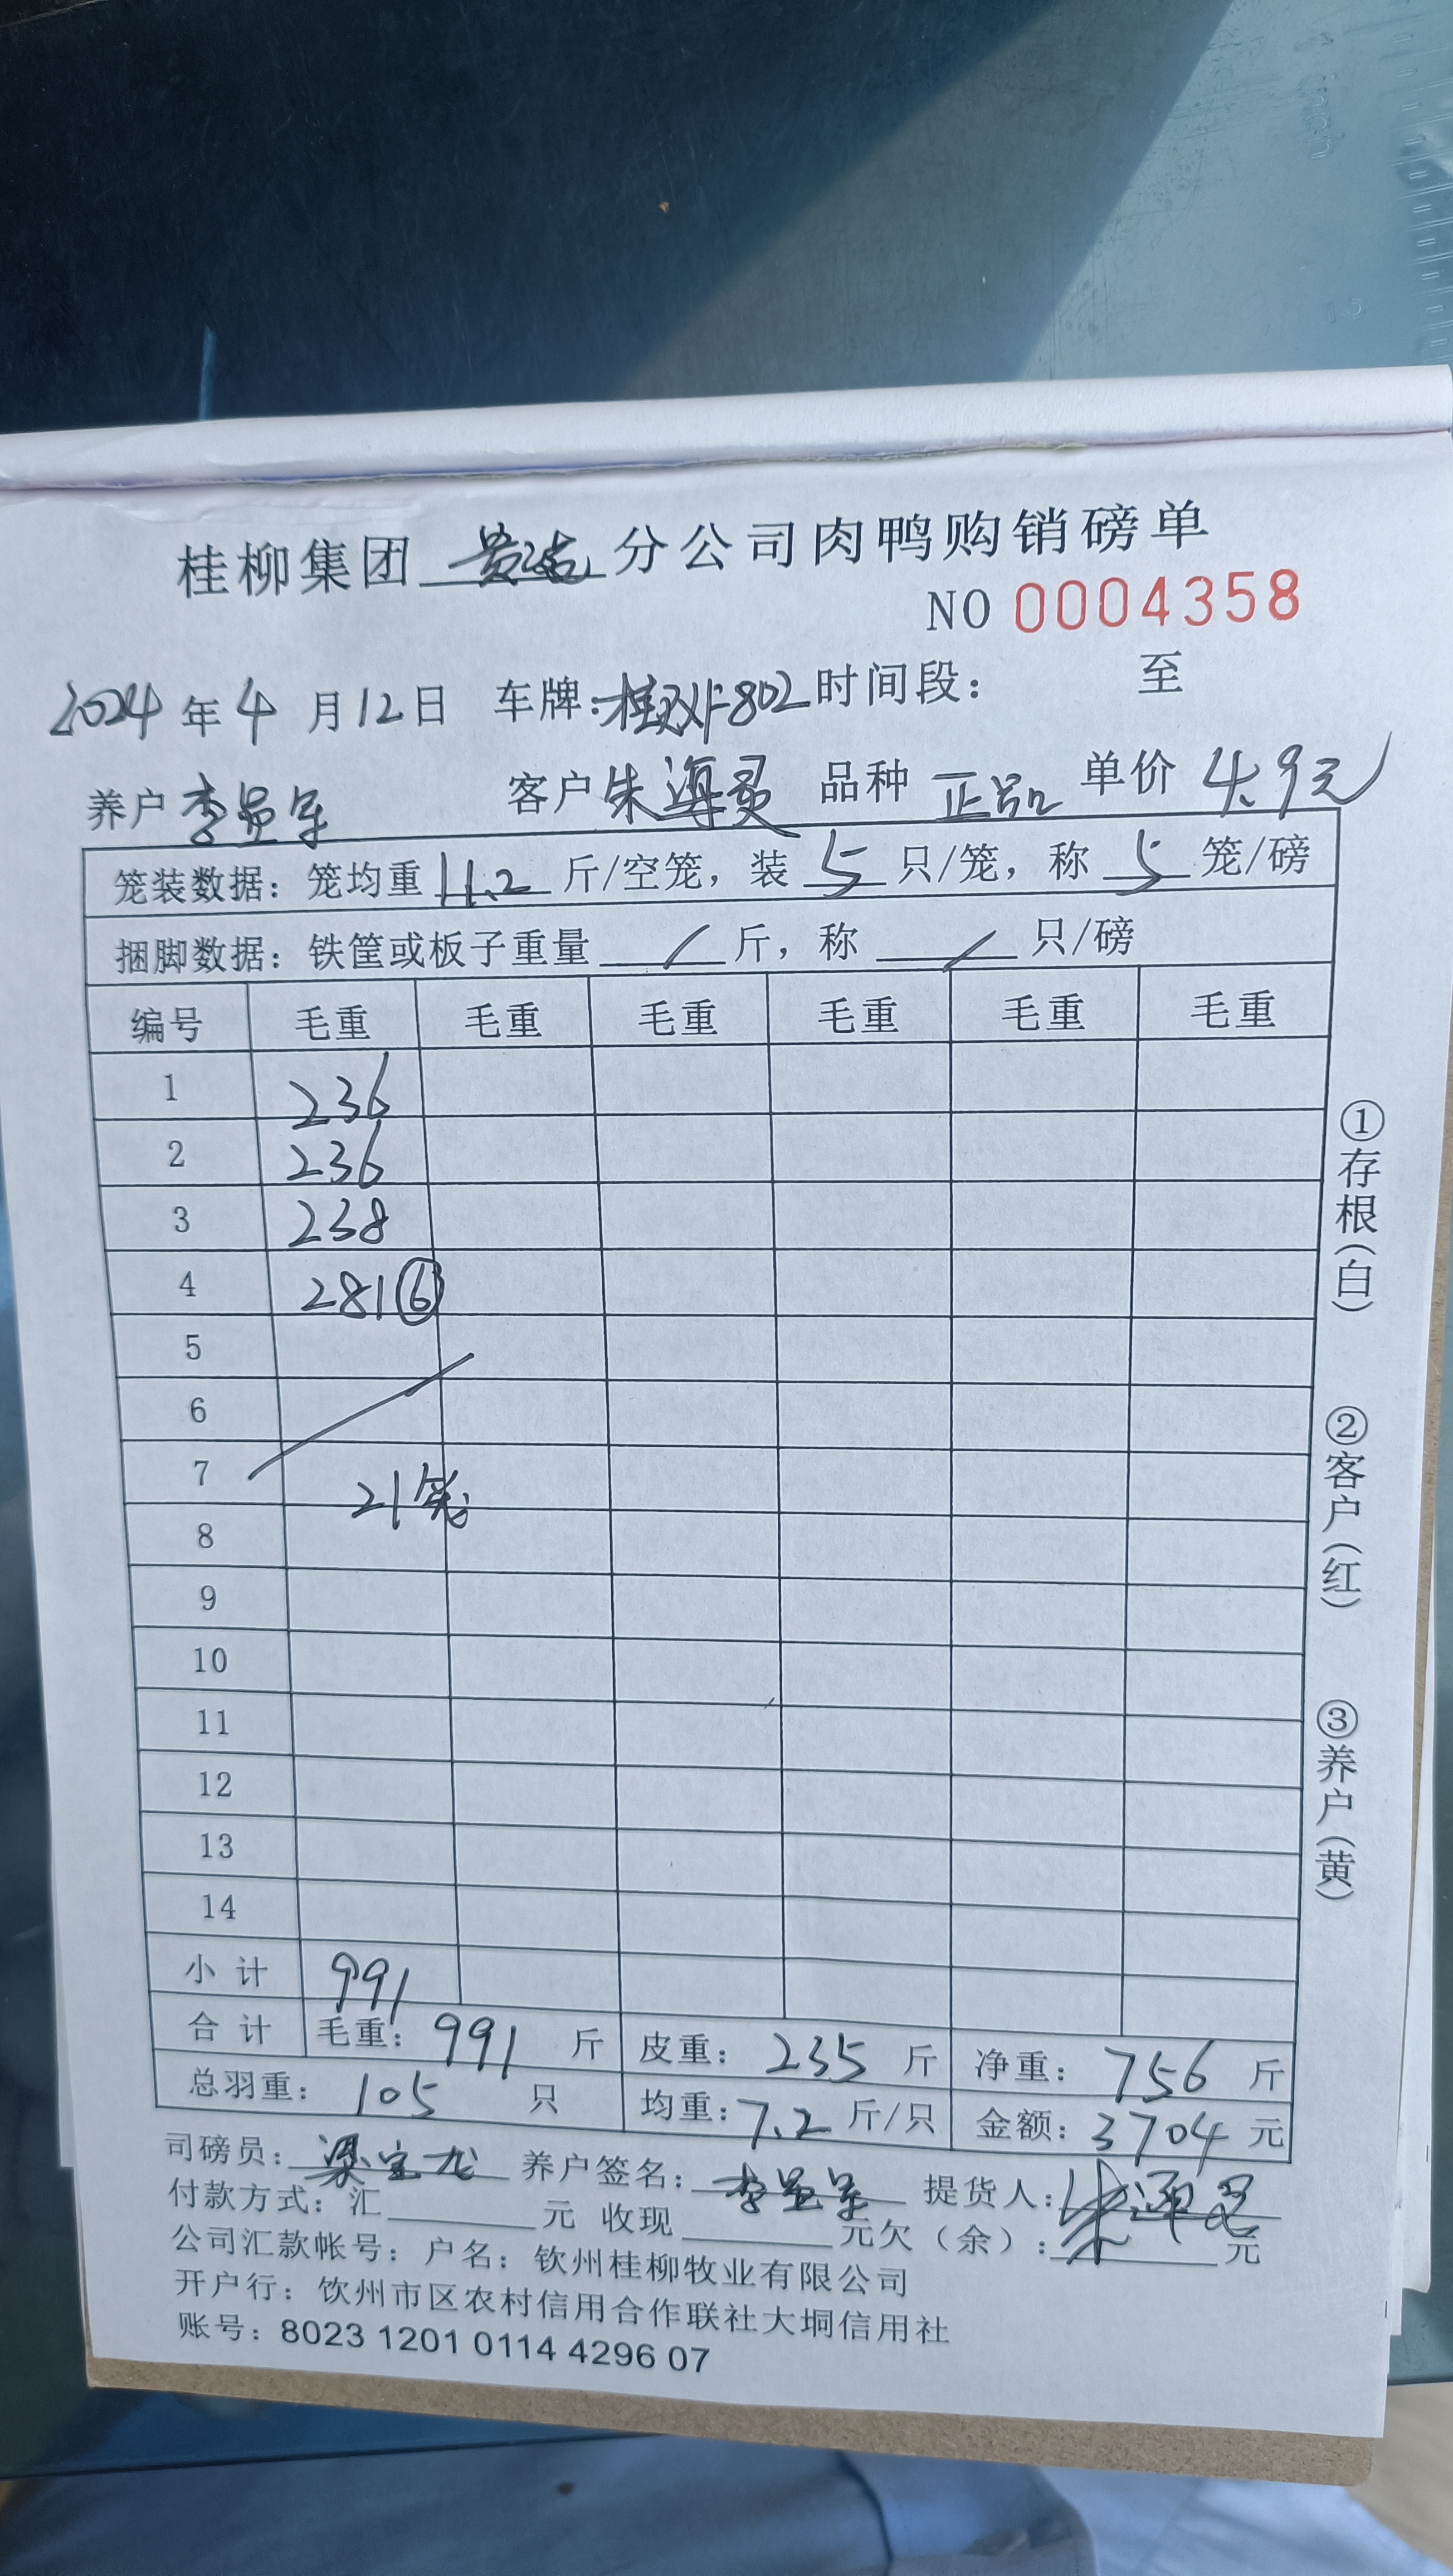 桂柳集团 贵港 分公司肉鸭购销磅单
NO 0004358
2024 年 4 月 12 日 车牌: 802 时间段: 至
养户 李 军 客户 朱海灵 品种 正品 单价 4.9元
笼装数据: 笼均重 11.2 斤/空笼, 装 5 只/笼, 称 5 笼/磅
捆脚数据: 铁筐或板子重量 / 斤, 称 / 只/磅
编号 毛重 毛重 毛重 毛重 毛重 毛重
1 236
2 236
3 238
4 281 ⑥
5
6
7 21笼
8
9
10
11
12
13
14
小计 991
合计 毛重: 991 斤 皮重: 235 斤 净重: 756 斤
总羽重: 105 只 均重: 7.2 斤/只 金额: 3704 元
司磅员: 梁宝龙 养户签名: 李 军 提货人: 朱海灵
付款方式: 汇 元 收现 元 欠(余): 元
公司汇款帐号: 户名: 钦州桂柳牧业有限公司
开户行: 饮州市区农村信用合作联社大垌信用社
账号: 8023 1201 0114 4296 07
①存根(白)
②客户(红)
③养户(黄)